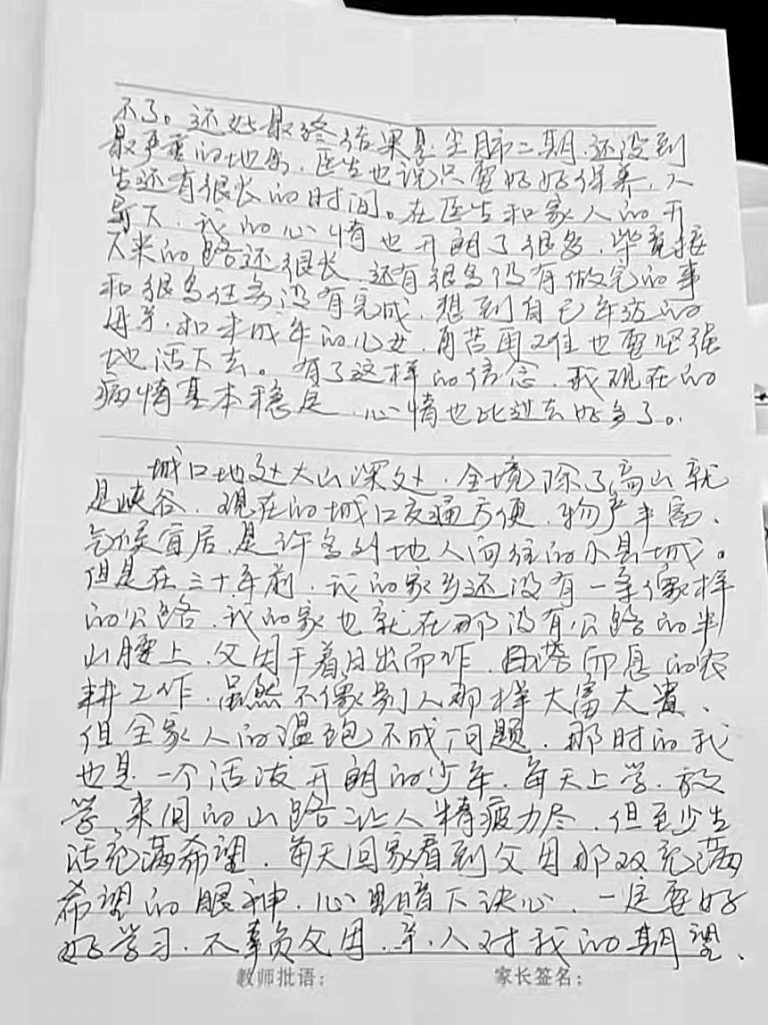 不了。还好最终结果是尘肺二期,还没到
最严重的地步,医生也说只要好好保养,人
生还有很长的时间。在医生和家人的开
导下,我的心情也开朗了很多,毕竟接
下来的路还很长,还有很多没有做完的事
和很多任务没有完成,想到自己年迈的
母亲,和未成年的儿女,再苦再难也要坚强
地活下去。有了这样的信念,我现在的
病情基本稳定,心情也比过去好多了。
城口地处大山深处,全境除了高山就
是峡谷,现在的城口交通方便,物产丰富、
气候宜居,是许多外地人向往的小县城。
但是在三十年前,我的家乡还没有一条像样
的公路,我的家也就在那没有公路的半
山腰上,父母干着日出而作,日落而息的农
耕工作,虽然不像别人那样大富大贵、
但全家人的温饱不成问题,那时的我
也是一个活泼开朗的少年,每天上学、放
学,来回的山路让人精疲力尽,但至少生
活充满希望,每天回家看到父母那双充满
希望的眼神,心里暗下决心,一定要好
好学习,不辜负父母、亲人对我的期望、
教师批语: 家长签名: